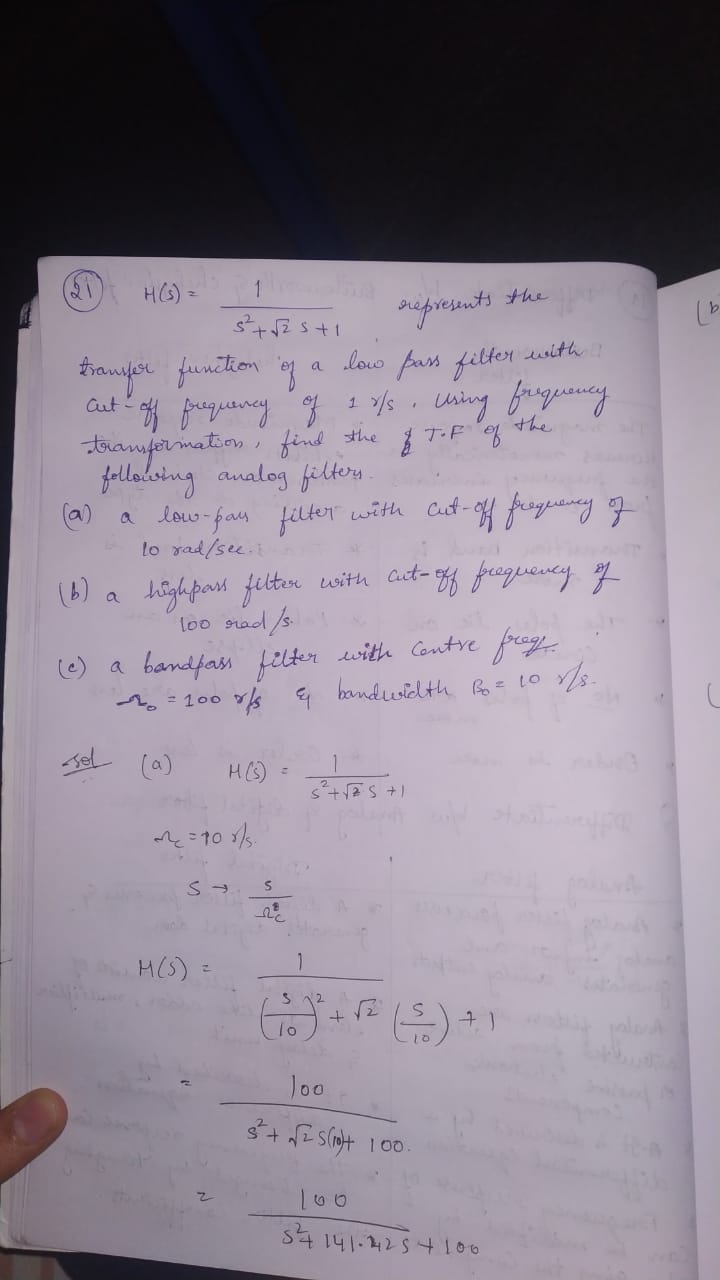 (21) H(s) = 1 / (s² + √2 s + 1) represents the
transfer function of a low pass filter with
cut-off frequency of 1 r/s. Using frequency
transformation, find the T.F of the
following analog filters.
(a) a low-pass filter with cut-off frequency of
10 rad/sec.
(b) a highpass filter with cut-off frequency of
100 rad/s.
(c) a bandpass filter with centre freq.
Ω₀ = 100 r/s & bandwidth B₀ = 10 r/s.
Sol (a) H(s) = 1 / (s² + √2 s + 1)
Ωc = 10 r/s.
S → s / Ωc
H(s) = 1 / ((s/10)² + √2 (s/10) + 1)
= 100 / (s² + √2 s(10) + 100.)
= 100 / (s² + 141.42 s + 100)
(b
(